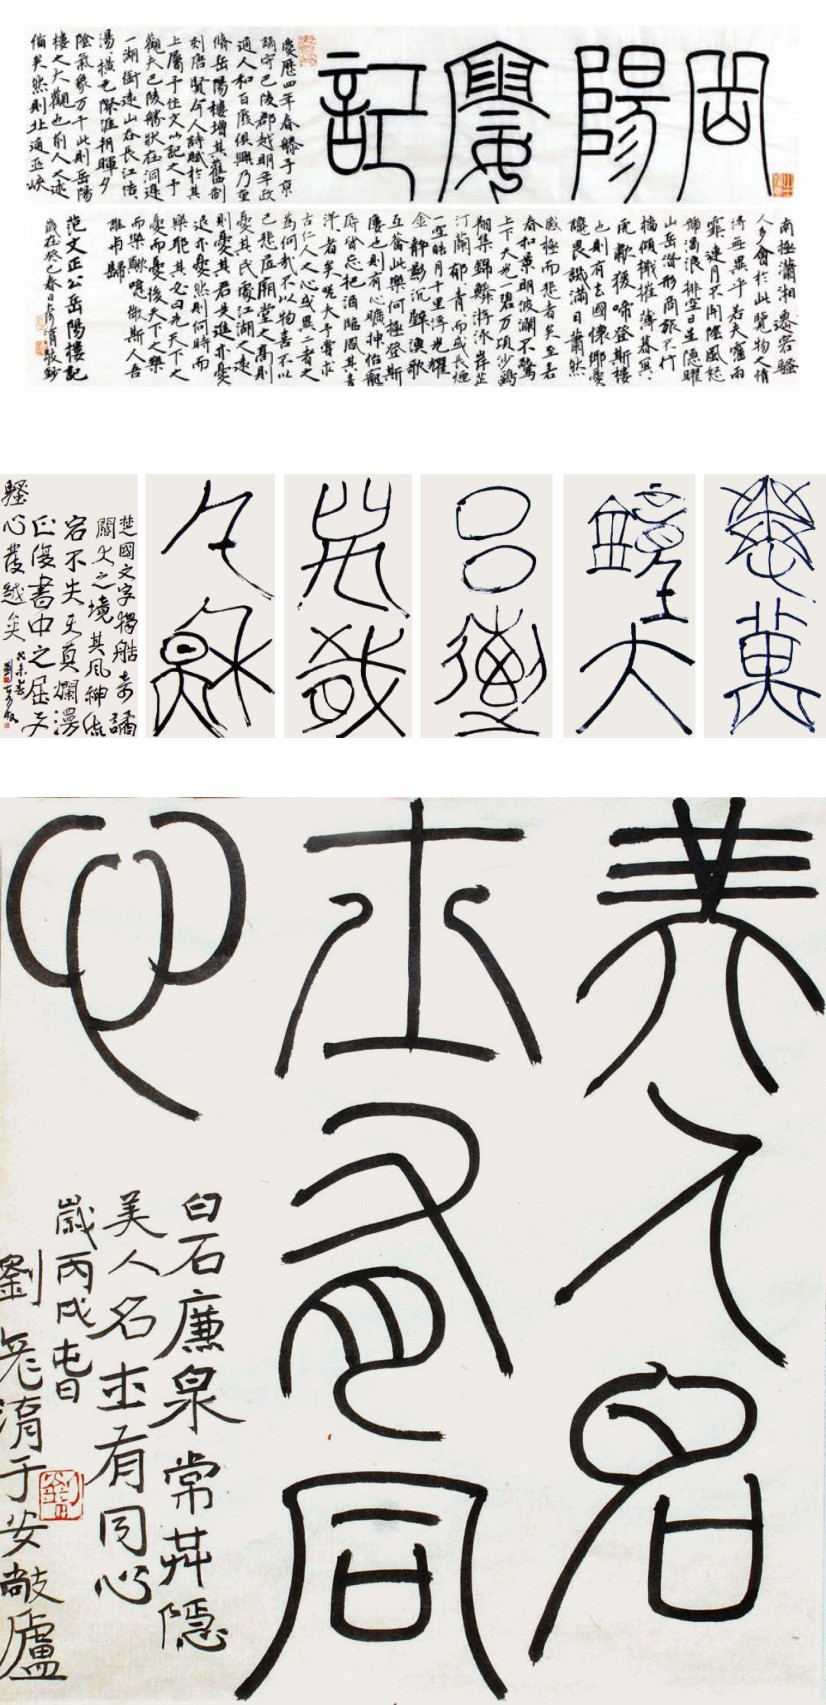 岳陽樓記
慶歷四年春滕子京
謫守巴陵郡越明年政
通人和百廢俱興乃重
脩岳陽樓增其舊制
刻唐賢今人詩賦於其
上屬予作文以記之予
觀夫巴陵勝狀在洞庭
一湖銜遠山吞長江浩浩
湯湯橫无際涯朝暉夕
陰氣象万千此則岳陽
樓之大觀也前人之述
備矣然則北通巫峽
南極瀟湘遷客騷
人多會於此覽物之情
得無異乎若夫霪雨
霏霏連月不開陰風怒
號濁浪排空日星隱曜
山岳潛形商旅不行
檣傾楫摧薄暮冥冥
虎嘯猿啼登斯樓
也則有去國懷鄉憂
讒畏譏滿目蕭然
感極而悲者矣至若
春和景明波瀾不驚
上下天光一碧万頃沙鷗
翔集錦鱗游泳岸芷
汀蘭郁郁青青而或長煙
一空皓月千里浮光耀
金靜影沉璧漁歌
互答此樂何極登斯
樓也則有心曠神怡寵
辱皆忘把酒臨風其喜
洋洋者矣嗟夫予嘗求
古仁人之心或異二者之
為何哉不以物喜不以
己悲居廟堂之高則
憂其民處江湖之遠
則憂其君是進亦憂
退亦憂然則何時而
樂耶其必曰先天下之
憂而憂後天下之樂
而樂歟噫微斯人吾
誰與歸
范文正公岳陽樓記
歲在癸巳春日 敬鈔
大
楚國文字獨酷奇譎
大之境其風紳流
宕不失天真爛漫
正復書中之屈子
騷心發越矣
美人名
士有同
心
白石廉泉常共隱
美人名士有同心
歲丙戌春日
劉 于安敞廬